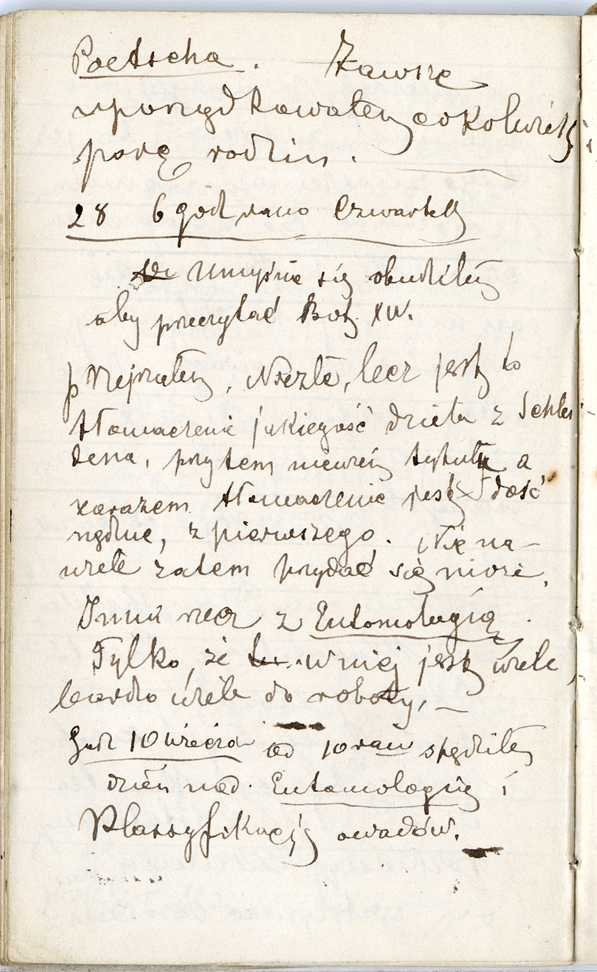 Poetscha. Zawsze
uporządkowałem cokolwiek
parę rodzin.
28 6 god rano Czwartek
Umyśnie się obudziłem
aby przeczytać Bot. XIV.
przejrzałem, Niezłe, lecz jest to
tłomaczenie jakiegoś dzieła z Schlei
dena, przytem niewiem tytułu a
zarazem tłomaczenie jest dość
ngólne, z pierwszego. Nie na
wiele zatem przydać się może.
Inna rzecz z Entomologią.
Tylko, że w niej jest wiele,
bardzo wiele do roboty, —
God 10 wieczór od 10 rano spędziłem
dzień nad. Entomologią i
Klassyfikacją owadów.